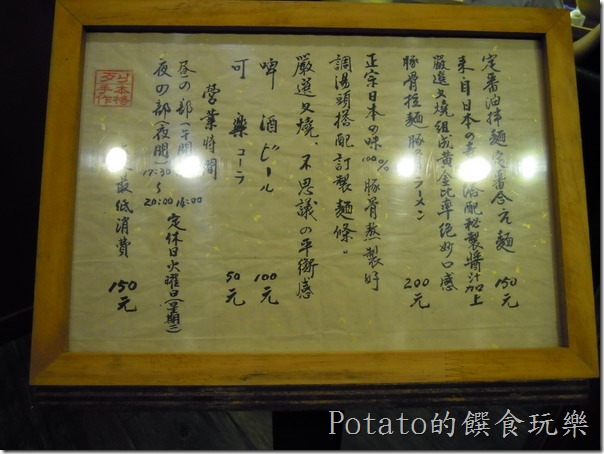 定番油拌麵 定番念元麵 150元
來自日本の 搭配秘製醬汁加上
嚴選叉燒組成黃金比率絕妙口感
豚骨拉麵 豚骨ラーメン 200元
正宗日本の味100%豚骨熬製好
調湯頭搭配訂製麵條。
嚴選叉燒、不思議の平衡感
啤酒 ビール 100元
可樂 コーラ 50元
營業時間
昼の部(午間) 14:00
夜の部(夜間)17:30~20:00
定休日火曜日(星期二)
最低消費 150元
本格
手作
Potato的饌食玩樂